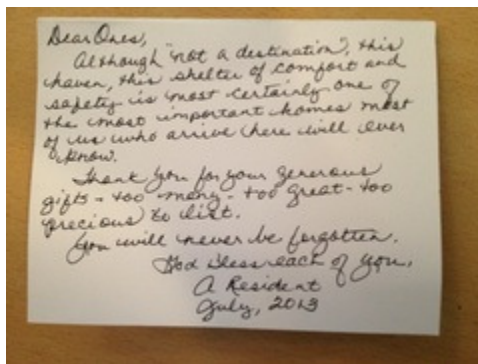 Dear Ones,
Although "not a destination", this
haven, this shelter of comfort and
safety is most certainly one of
the most important homes most
of us who arrive here will ever
know.
Thank you for your generous
gifts - too many - too great - too
precious to list.
You will never be forgotten.
God bless each of you,
A Resident
July, 2013